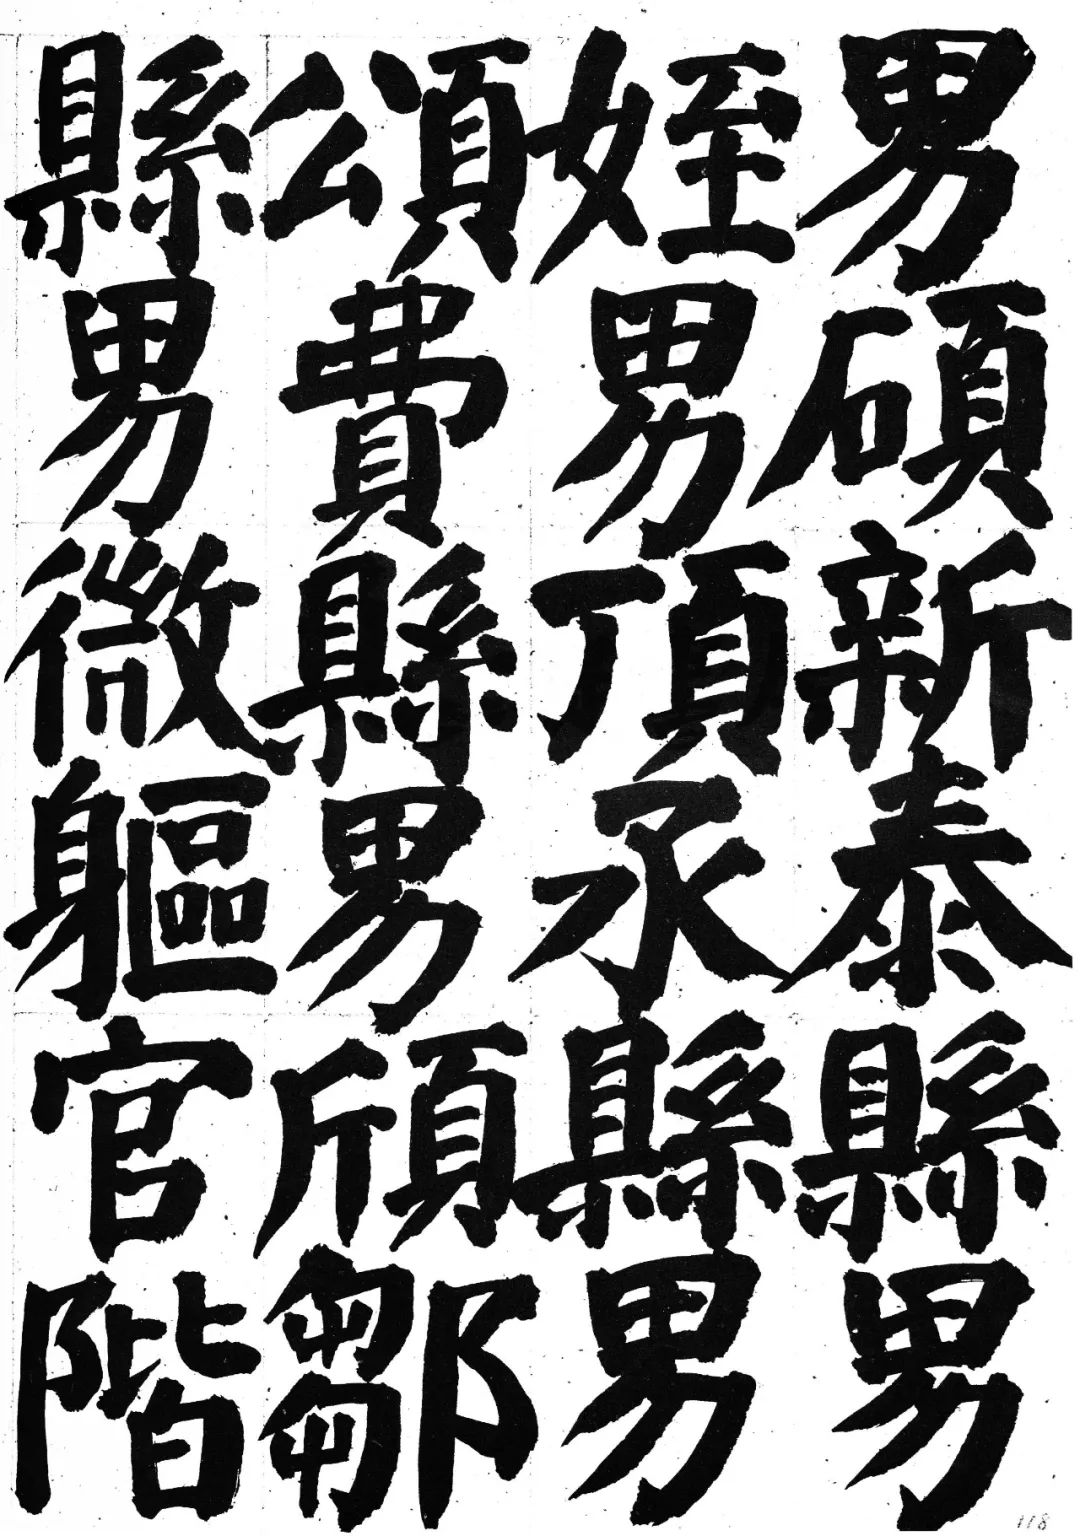 男碩新泰縣男
姪男頂氶縣男
頌費縣男頎鄒
縣男微軀官階
118